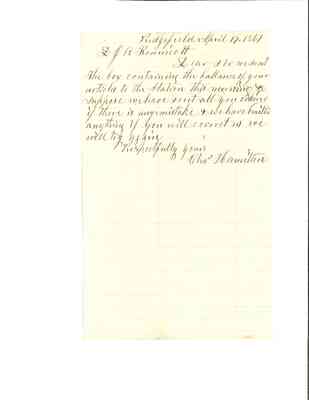 Ridgefield April 17, 1861
D J A Kennicott
Dear Sir we sent
the box containing the ballance of your
articls to the station this morning &
suppose we have sent all you ordered
if there is any mistake & we have omitted
anything if you will correct us we
will try again
Respectfully yours
Chas Hamilton